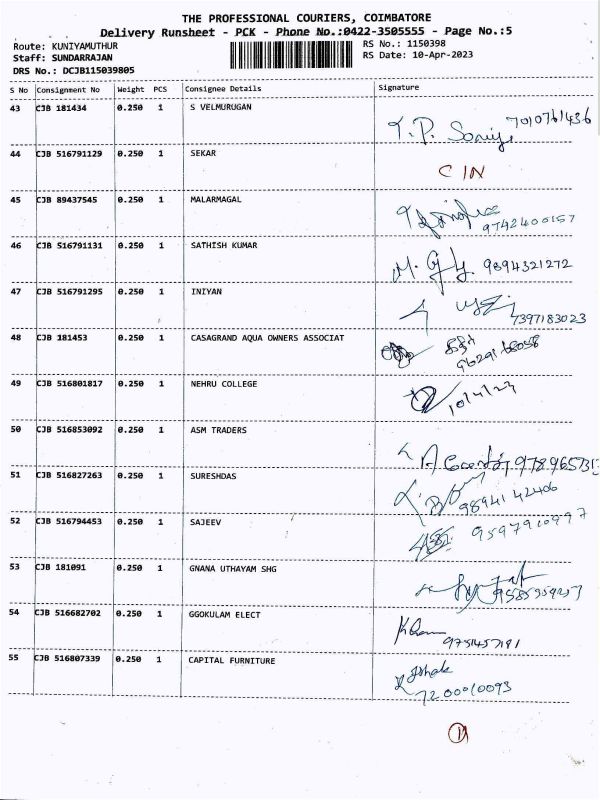 THE PROFESSIONAL COURIERS, COIMBATORE
Delivery Runsheet - PCK - Phone No.:0422-3505555 - Page No.:5
Route: KUNIYAMUTHUR RS No.: 1150398
Staff: SUNDARRAJAN RS Date: 10-Apr-2023
DRS No.: DCJB115039805
S No Consignment No Weight PCS Consignee Details Signature
43 CJB 181434 0.250 1 S VELMURUGAN T.P. 7010761436
44 CJB 516791129 0.250 1 SEKAR C IN
45 CJB 89437545 0.250 1 MALARMAGAL 9742400157
46 CJB 516791131 0.250 1 SATHISH KUMAR M. 9894321272
47 CJB 516791295 0.250 1 INIYAN 7397183023
48 CJB 181453 0.250 1 CASAGRAND AQUA OWNERS ASSOCIAT
49 CJB 516801817 0.250 1 NEHRU COLLEGE 10/4/23
50 CJB 516853092 0.250 1 ASM TRADERS
51 CJB 516827263 0.250 1 SURESHDAS 9894142406
52 CJB 516794453 0.250 1 SAJEEV 9597910997
53 CJB 181091 0.250 1 GNANA UTHAYAM SHG
54 CJB 516682702 0.250 1 GGOKULAM ELECT 9751457191
55 CJB 516807339 0.250 1 CAPITAL FURNITURE 7200010093